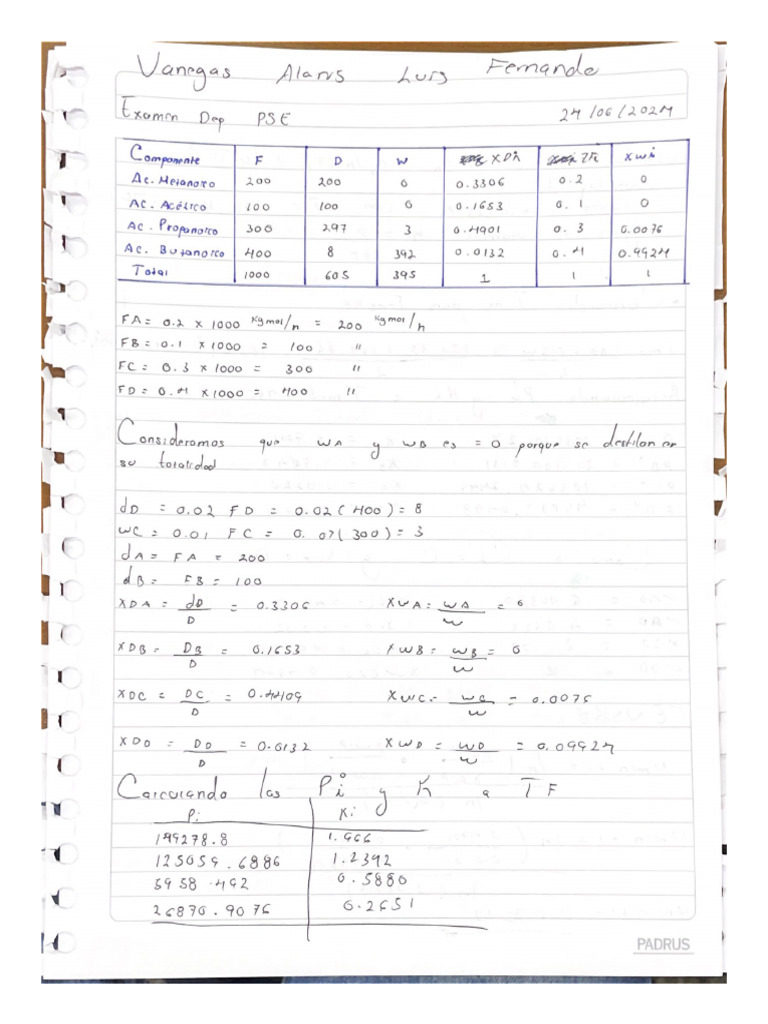 Vanegas Alanis Luis Fernando
Examen Dep PSE 24/06/2024
Componente F D W XDi ZFi Xwi
Ac. Metanoico 200 200 0 0.3306 0.2 0
Ac. Acético 100 100 0 0.1653 0.1 0
Ac. Propanoico 300 297 3 0.4901 0.3 0.0076
Ac. Butanoico 400 8 392 0.0132 0.4 0.9924
Total 1000 605 395 1 1 1
FA = 0.2 x 1000 Kgmol/h = 200 Kgmol/h
FB = 0.1 x 1000 = 100 "
FC = 0.3 x 1000 = 300 "
FD = 0.4 x 1000 = 400 "
Consideramos que WA y WB es = 0 porque se destilan en
su totalidad
dD = 0.02 FD = 0.02(400) = 8
WC = 0.01 FC = 0.01(300) = 3
dA = FA = 200
dB = FB = 100
XDA = dD/D = 0.3306 XWA = WA/W = 0
XDB = DB/D = 0.1653 XWB = WB/W = 0
XDC = DC/D = 0.4409 XWC = WC/W = 0.0076
XDD = DD/D = 0.0132 XWD = WD/W = 0.09924
Calculando las Pi° y K a TF
Pi Ki
199278.8 1.966
125659.6886 1.2392
5958.492 0.5880
26870.9076 0.2651
PADRUS